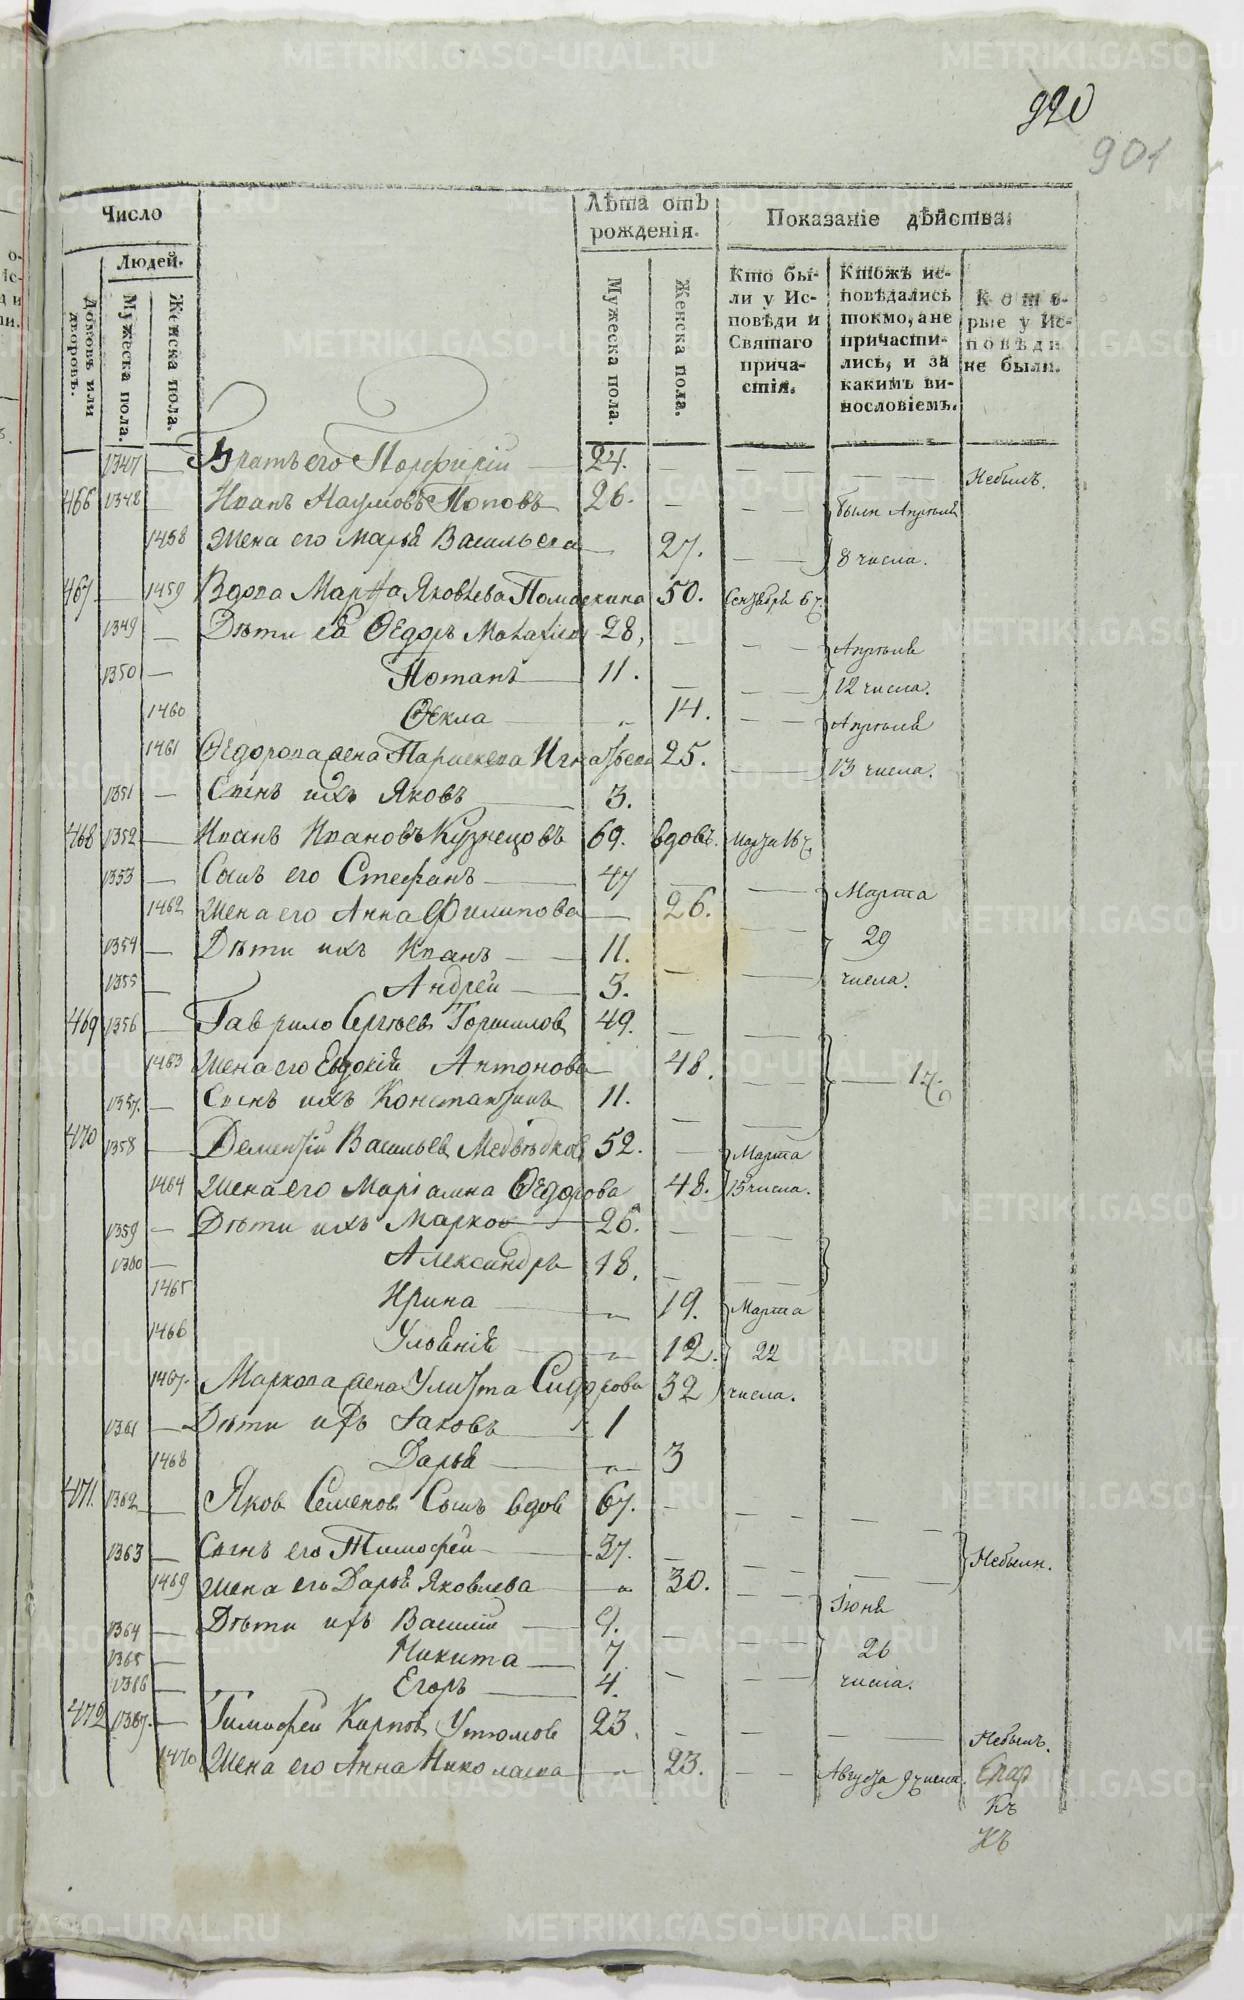 920
901
Число
Людей.
Домовъ или дворовъ.
Мужеска пола.
Женска пола.
Лѣта отъ рожденія.
Мужеска пола.
Женска пола.
Показаніе дѣйства:
Кто были у Исповѣди и Святаго причастія.
Ктожъ исповѣдались токмо, а не причастились, и за какимъ винословіемъ.
Которые у Исповѣди не были.
1347 — Братъ его Порфирій — 24. — — — — — Небылъ.
466 1348 — Иванъ Наумовъ Поповъ — 26. — — — были Апрѣля
1458 Жена его Марья Васильева — 27. — — 8 числа.
467 — 1459 Вдова Марѳа Яковлева 50. Сентября 6 ч.
1349 — Дѣти ея Ѳедоръ 28, — — — Апрѣля
1350 — Потапъ — 11. — — — 12 числа.
1460 Ѳекла — „ 14. — — Апрѣля
1461 Ѳедорова жена Параскева Игнатьева 25. — — 13 числа.
1351 — Сынъ ихъ Яковъ — 3.
468 1352 — Иванъ Ивановъ Кузнецовъ 69. вдовъ. Марта 16 ч.
1353 — Сынъ его Стефанъ — 47 — — Марта
1462 Жена его Анна Филипова — 26. — — 29
1354 — Дѣти ихъ Иванъ — — 11. числа.
1355 — Андрей — 3. — —
469 1356 — Гаврило Сергѣевъ 49. — — —
1463 Жена его Евдокія Антонова — 48. — — — 17.
1357. — Сынъ ихъ Константинъ 11. — — —
470 1358 — Дементій Васильевъ Медвѣдковъ 52. — Марта
1464 Жена его Маріамна Ѳедорова 48. 15 числа.
1359 — Дѣти ихъ Марко — 26. — — —
1360 — Александръ 18. — — —
1465 Ирина — „ 19. Марта
1466 „ 12. 22
1467. Маркова жена Улита Сидорова 32 числа.
1361 — Дѣти ихъ Іаковъ — 1
1468 Дарья — „ 3
471. 1362 — Яковъ Семеновъ вдовъ 67. — — — — —
1363 — Сынъ его Тимофей — 37. — — — — Небыли.
1469 Жена его Дарья Яковлева — „ 30. — — Іюня
1364 — Дѣти ихъ Василій — 9. — — —
1365 — Никита — 7 — — — 26
1366 — Егоръ — 4. — — — числа.
472 1367. — Тимофей Карповъ Утюмовъ 23. — — — — — Небылъ.
1470 Жена его Анна Николаева — „ 23. — — Августа 9 числа.
Къ